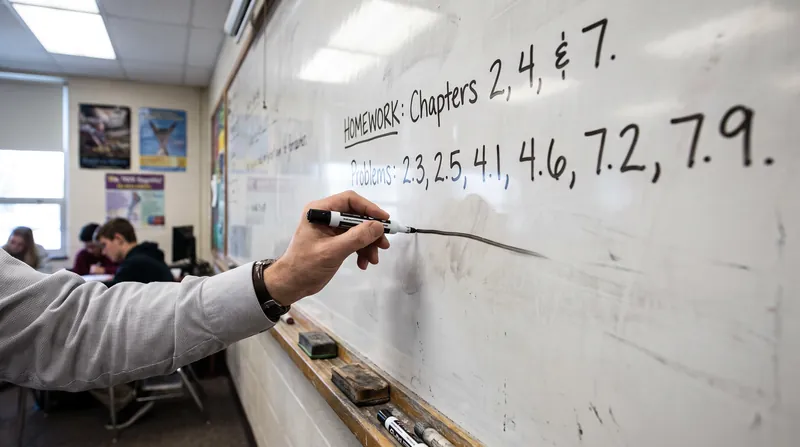 HOMEWORK: Chapters 2, 4, & 7.
Problems: 2.3, 2.5, 4.1, 4.6, 7.2, 7.9.